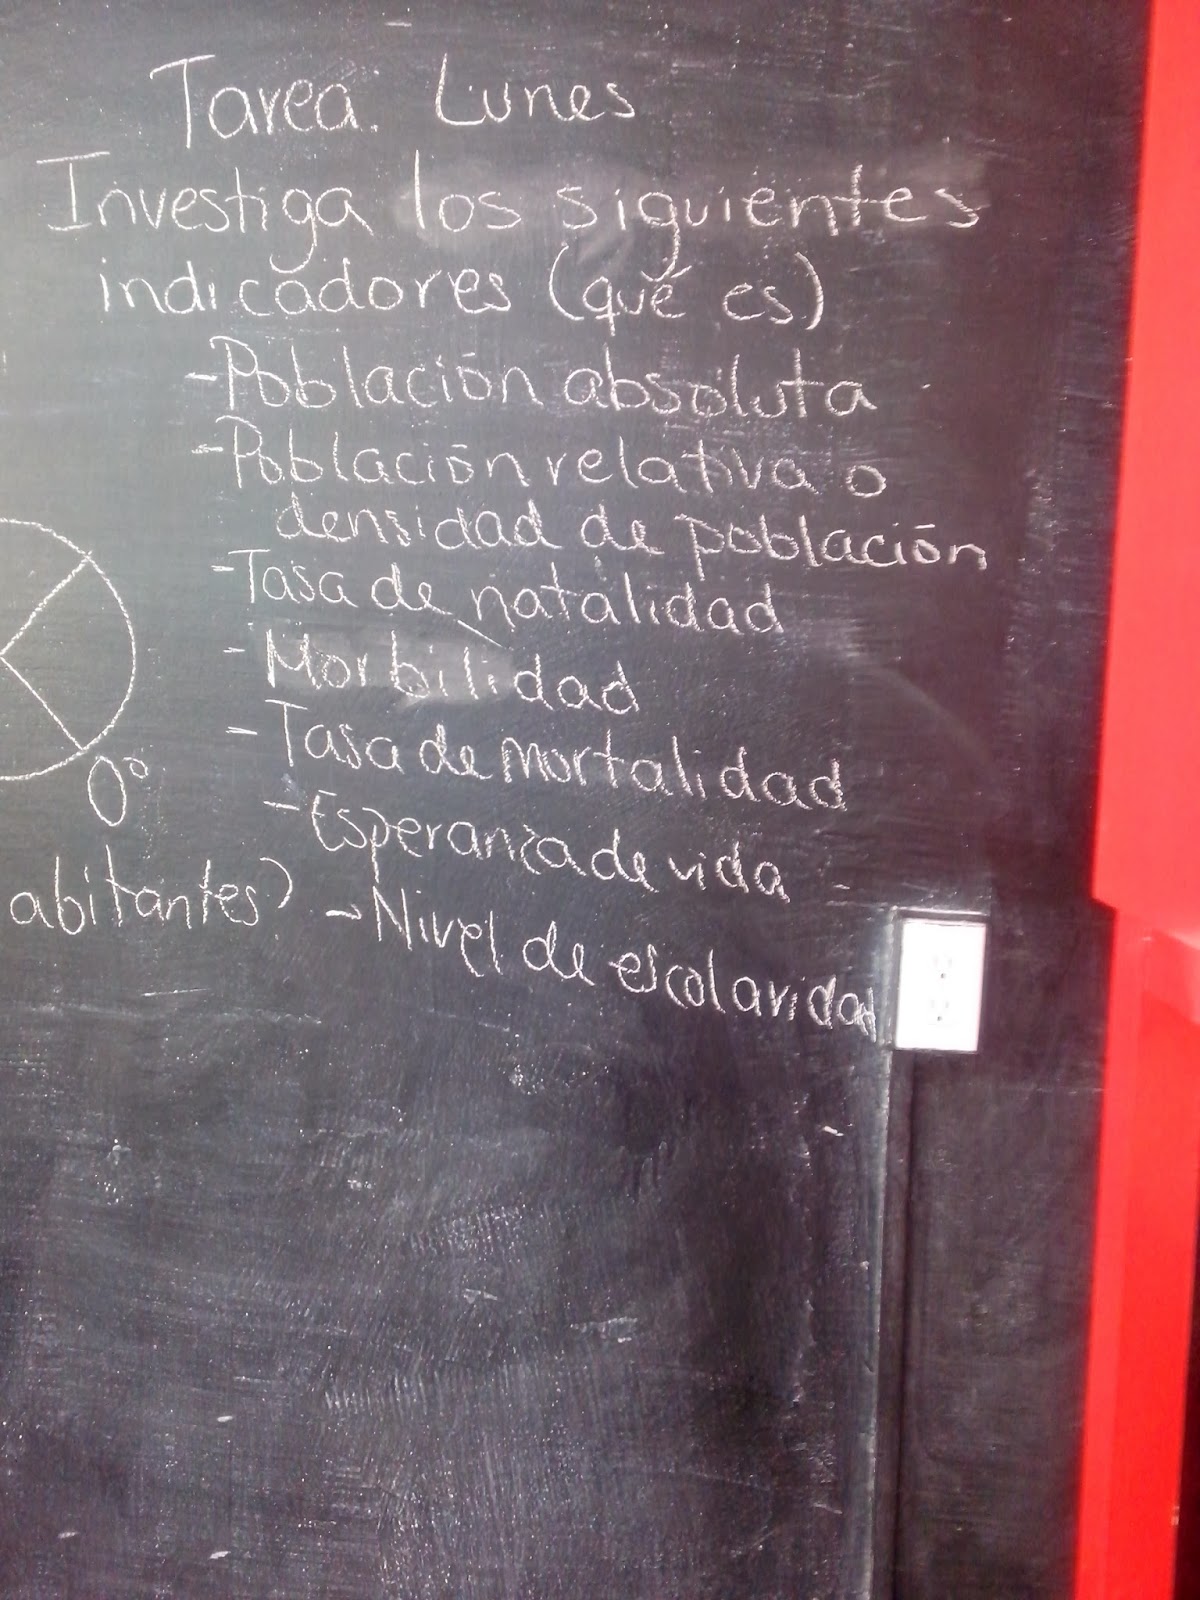 Tarea. Lunes
Investiga los siguientes
indicadores (qué es)
-Población absoluta
-Población relativa o
densidad de población
-Tasa de natalidad
-Morbilidad
-Tasa de mortalidad
0°
-Esperanza de vida
abitantes?
-Nivel de escolaridad